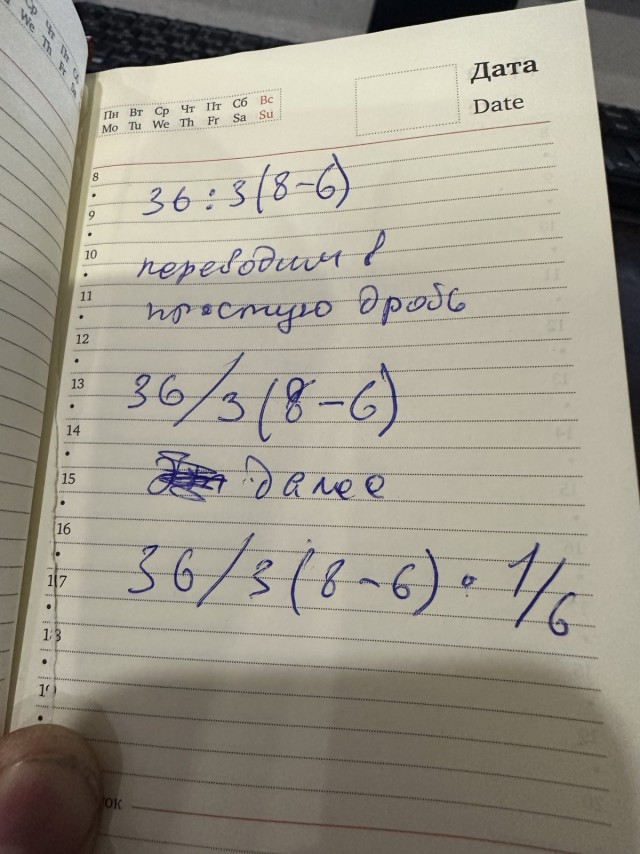 Ср Чт Пт Сб
We Th Fr Sa
Дата
Date
Пн Вт Ср Чт Пт Сб Вс
Mo Tu We Th Fr Sa Su
8
36 : 3(8-6)
9
переводим в
10
простую дробь
11
12
36/3(8-6)
13
14
далее
15
16
36/3(8-6) • 1/6
17
18
19